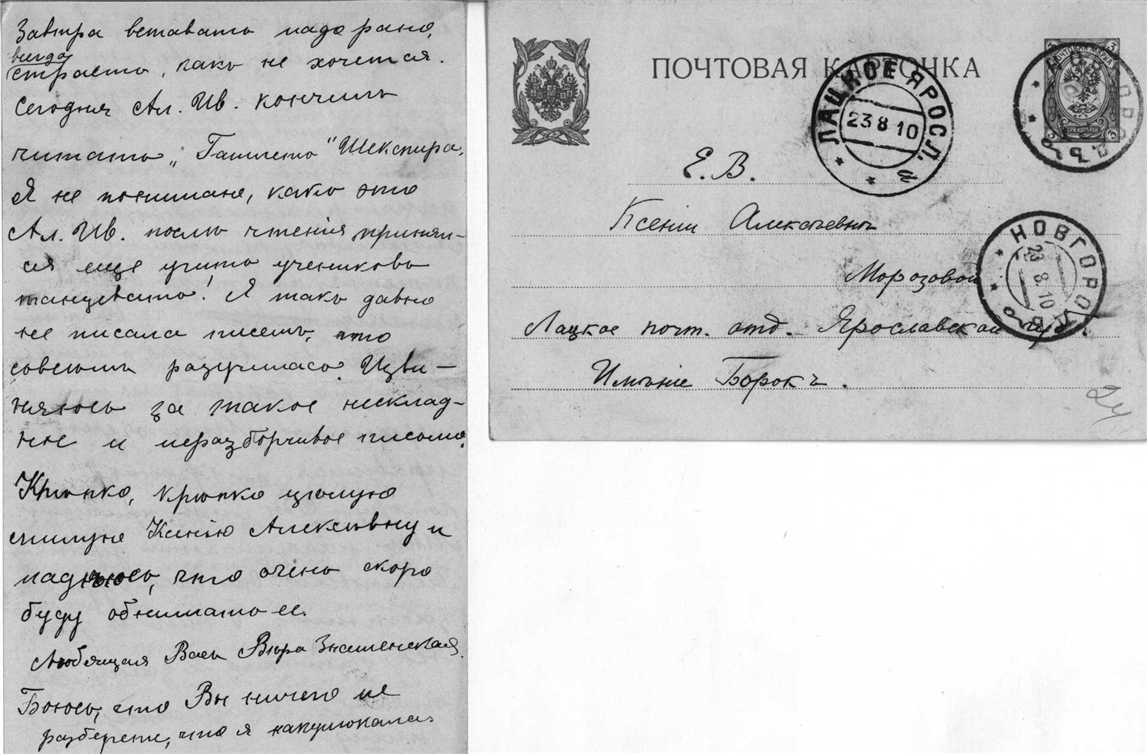 Завтра вставать надо рано,
всегда
страсть, какъ не хочется.
Сегодня Ал. Ив. кончилъ
читать „Гамлета" Шекспира.
Я не понимаю, какъ это
Ал. Ив. послѣ чтенія принял-
ся еще учить учениковъ
танцевать! Я такъ давно
не писала писемъ, что
совсѣмъ разучилась. Изви-
няюсь за такое несклад-
ное и неразборчивое письмо.
Крѣпко, крѣпко цѣлую
милую Ксенію Алексѣевну и
надѣюсь, что очень скоро
буду обнимать ее.
Любящая Васъ Вѣра Знаменская.
Боюсь, что Вы ничего не
разберете, что я накулюкала.
ПОЧТОВАЯ КАРТОЧКА
ЛАЦКОЕ ЯРОСЛ.
23 8 10
Е. В.
Ксеніи Алексѣевнѣ
Морозовой
НОВГОРОДЪ
23 8 10
Лацкое почт. отд. Ярославской губ.
Имѣніе Борокъ.
24